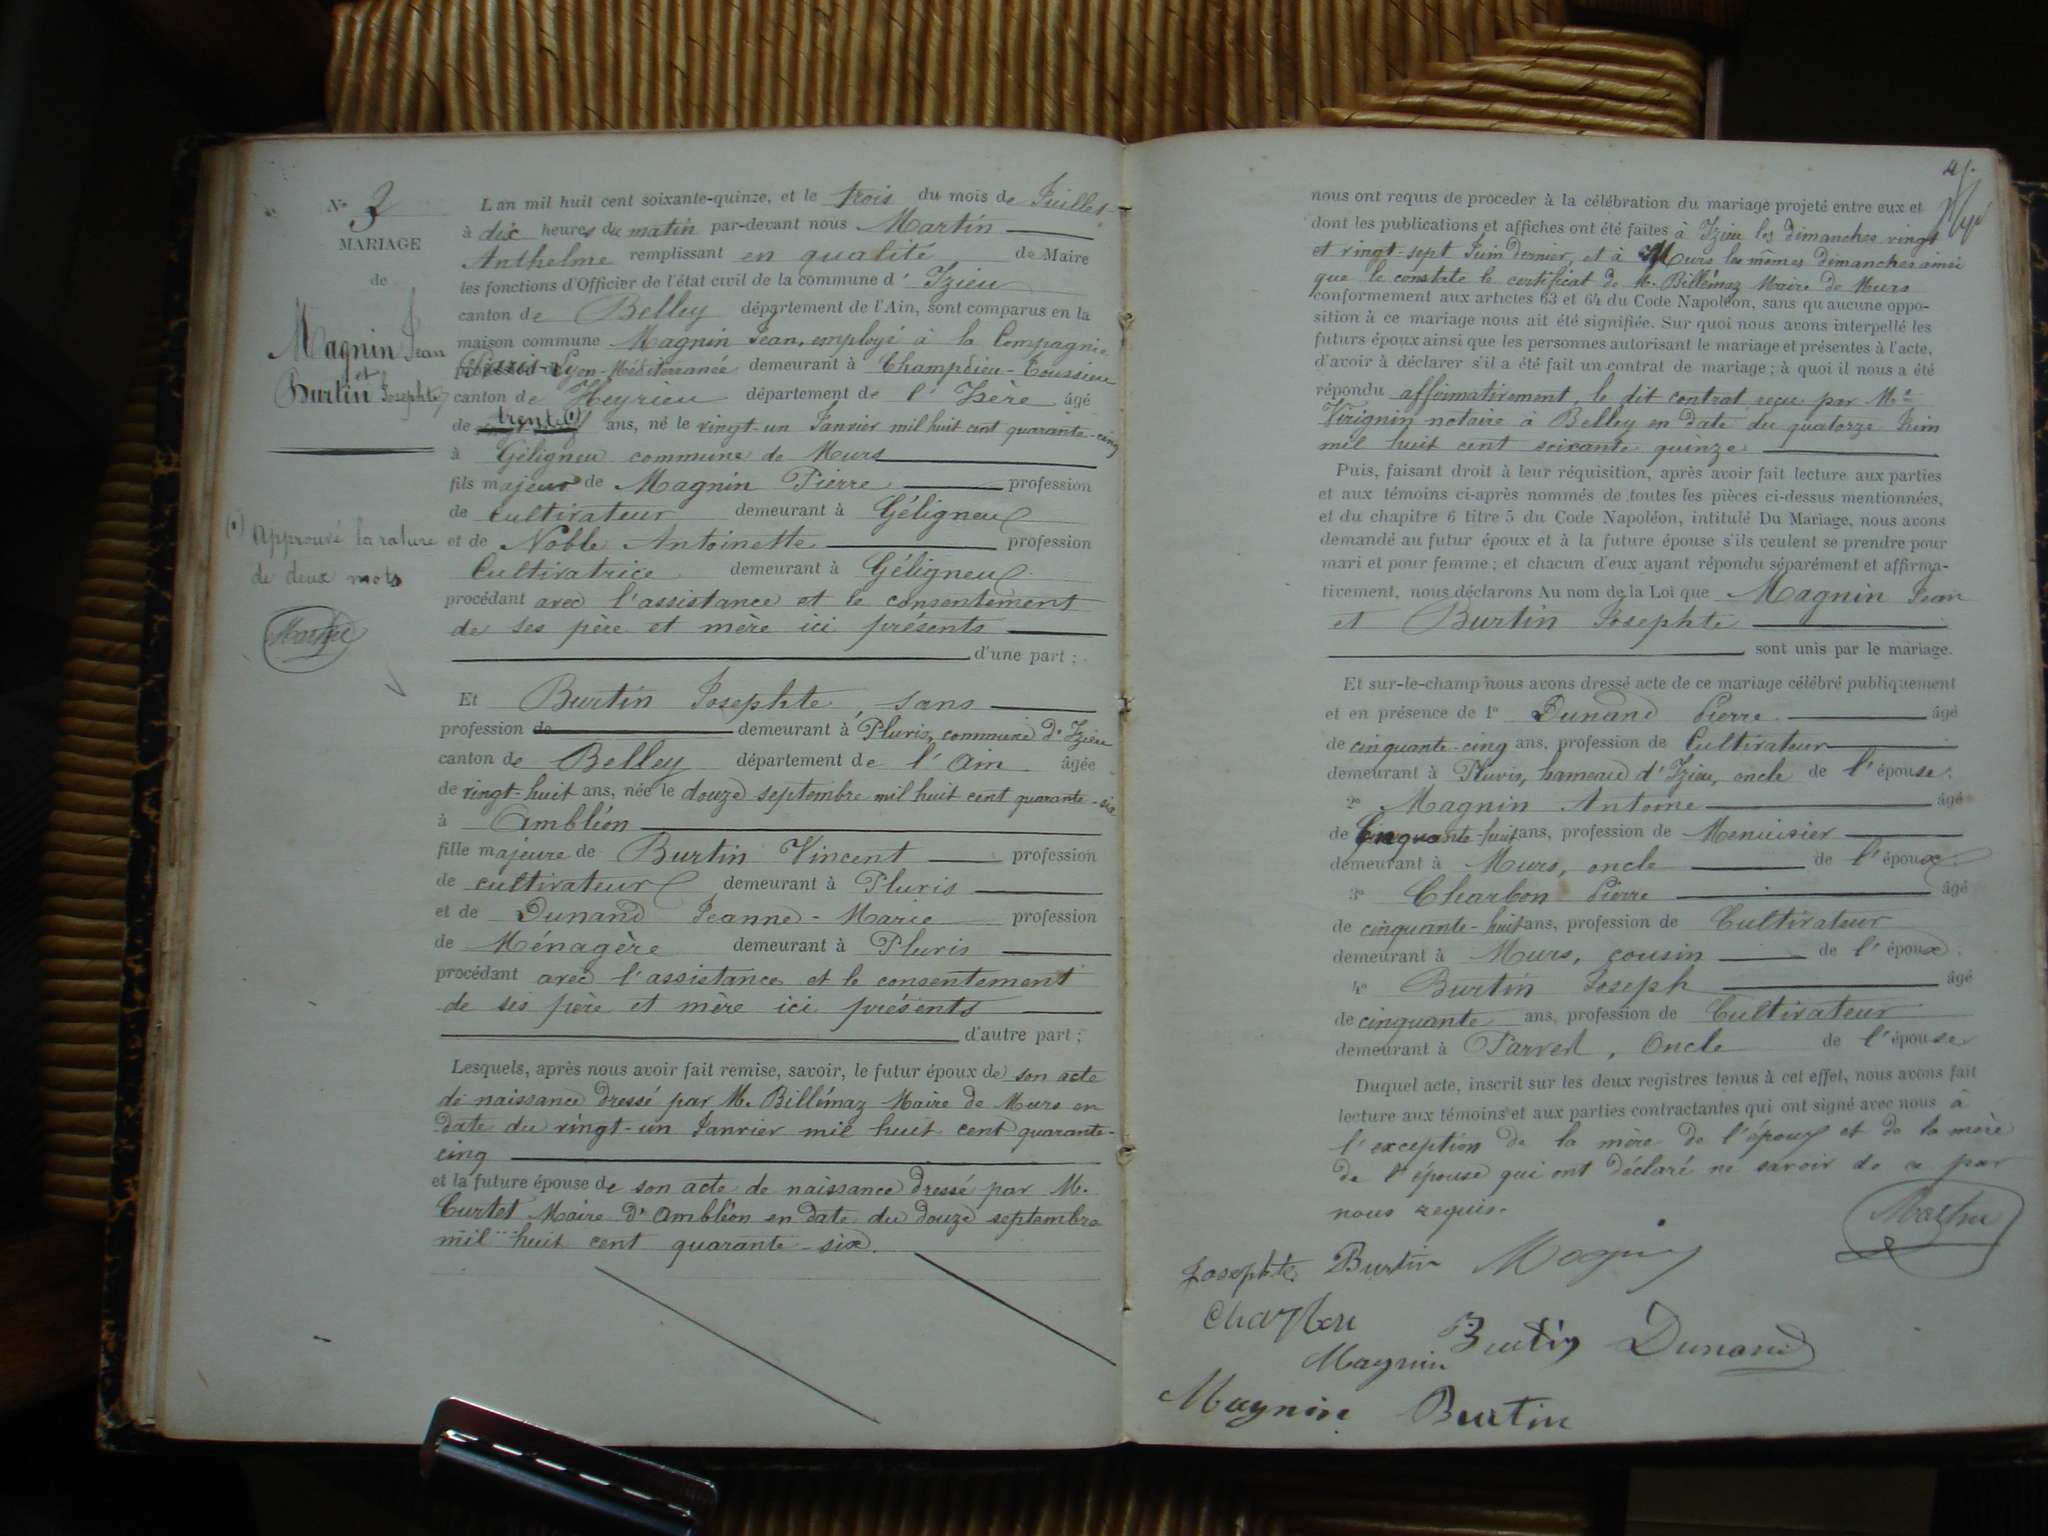 No 3
MARIAGE
de
Magnin Jean
et
Burtin Josephte
(1) Approuvé la rature
de deux mots
L'an mil huit cent soixante-quinze, et le trois du mois de Juillet
à dix heures du matin par-devant nous Martin
Anthelme remplissant en qualité de Maire
les fonctions d'Officier de l'état civil de la commune d' Izieu
canton de Belley département de l'Ain, sont comparus en la
maison commune Magnin Jean, employé à la Compagnie
Paris-Lyon-Méditerranée demeurant à Champdieu-Toussieu
canton de Heyrieu département de l' Isère âgé
de trente (1) ans, né le vingt-un Janvier mil huit cent quarante-cinq
à Géligneu commune de Murs
fils majeur de Magnin Pierre profession
de cultivateur demeurant à Géligneu
et de Noble Antoinette profession
Cultivatrice demeurant à Géligneu
procédant avec l'assistance et le consentement
de ses père et mère ici présents
d'une part ;
Et Burtin Josephte, sans
profession de demeurant à Pluris, commune d'Izieu
canton de Belley département de l'Ain âgée
de vingt-huit ans, née le douze septembre mil huit cent quarante-six
à Ambléon
fille majeure de Burtin Vincent profession
de cultivateur demeurant à Pluris
et de Dunand Jeanne-Marie profession
de Ménagère demeurant à Pluris
procédant avec l'assistance et le consentement
de ses père et mère ici présents
d'autre part ;
Lesquels, après nous avoir fait remise, savoir, le futur époux de son acte
de naissance dressé par M. Billémaz Maire de Murs en
date du vingt-un Janvier mil huit cent quarante-
cinq
et la future épouse de son acte de naissance dressé par M.
Curtet Maire d'Ambléon en date du douze septembre
mil huit cent quarante-six.
nous ont requis de proceder à la célébration du mariage projeté entre eux et
dont les publications et affiches ont été faites à Izieu les dimanches vingt
et vingt-sept Juin dernier, et à Murs les mêmes dimanches ainsi
que le constate le certificat de M. Billémaz Maire de Murs
conformement aux articles 63 et 64 du Code Napoléon, sans qu'aucune oppo-
sition à ce mariage nous ait été signifiée. Sur quoi nous avons interpellé les
futurs époux ainsi que les personnes autorisant le mariage et présentes à l'acte,
d'avoir à déclarer s'il a été fait un contrat de mariage ; à quoi il nous a été
répondu affirmativement, le dit contrat reçu par Me
Virignin notaire à Belley en date du quatorze Juin
mil huit cent soixante quinze
Puis, faisant droit à leur réquisition, après avoir fait lecture aux parties
et aux témoins ci-après nommés de toutes les pièces ci-dessus mentionnées,
et du chapitre 6 titre 5 du Code Napoléon, intitulé Du Mariage, nous avons
demandé au futur époux et à la future épouse s'ils veulent se prendre pour
mari et pour femme ; et chacun d'eux ayant répondu séparément et affirma-
tivement, nous déclarons Au nom de la Loi que Magnin Jean
et Burtin Josephte
sont unis par le mariage.
Et sur-le-champ nous avons dressé acte de ce mariage célébré publiquement
et en présence de 1° Dunand Pierre âgé
de cinquante-cinq ans, profession de Cultivateur
demeurant à Pluris, hameau d'Izieu, oncle de l'épouse.
2° Magnin Antoine âgé
de Cinquante-huit ans, profession de Menuisier
demeurant à Murs, oncle de l'époux.
3° Charbon Pierre âgé
de cinquante-huit ans, profession de Cultivateur
demeurant à Murs, cousin de l'époux.
4° Burtin Joseph âgé
de cinquante ans, profession de Cultivateur
demeurant à Parves, Oncle de l'épouse
Duquel acte, inscrit sur les deux registres tenus à cet effet, nous avons fait
lecture aux témoins et aux parties contractantes qui ont signé avec nous à
l'exception de la mère de l'époux et de la mère
de l'épouse qui ont déclaré ne savoir de ce par
nous requis.
Josephte Burtin Magnin
Charbon
Burtin Dunand
Magnin
Magnin Burtin